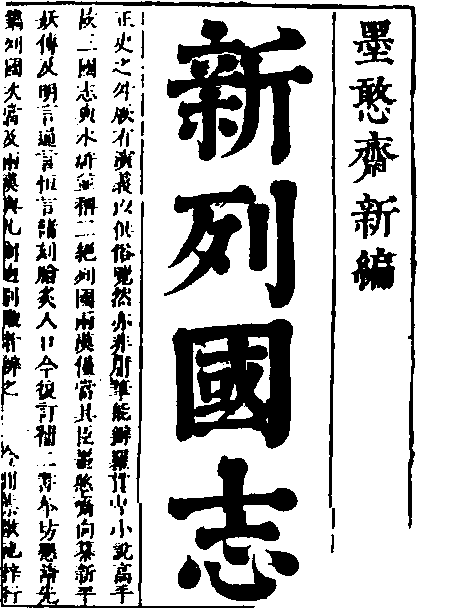 墨憨齋新編
新列國志
正史之外厥有演義以供俗覽然亦非庸筆能辦羅貫中小說高手
故三國志與水滸並稱二絕列國兩漢僅當具臣墨憨齋向纂新平
妖傳及明言通言恒言諸刻膾炙人口今復訂補二書本坊懇請先
鐫列國次當及兩漢與凡刻迥別識者辨之 金閶葉敬池梓行